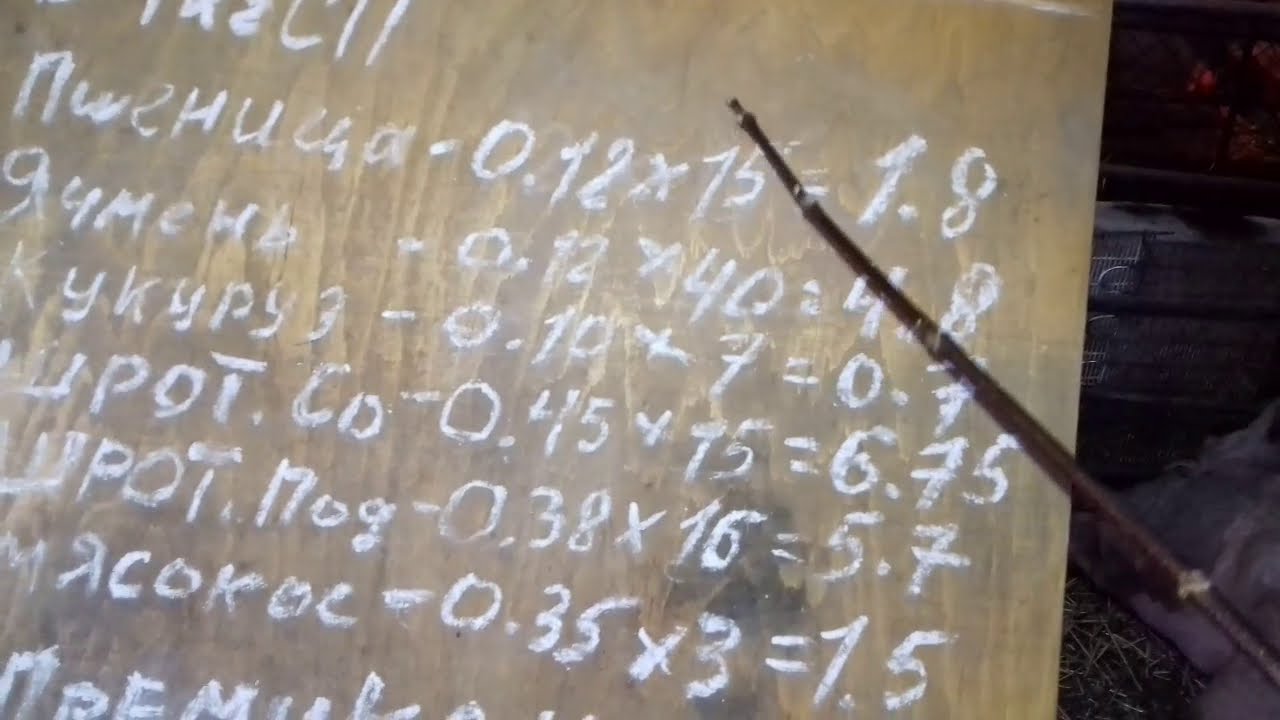 Пшеница - 0.12 x 15 = 1.8
Ячмень - 0.12 x 40 = 4.8
Кукуруз - 0.10 x 7 = 0.7
ШРОТ. Со - 0.45 x 15 = 6.75
ШРОТ. Под - 0.38 x 15 = 5.7
мясокос - 0.35 x 3 = 1.5